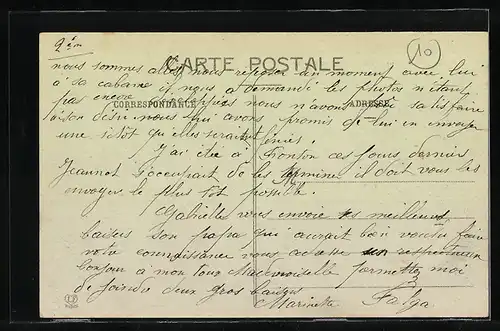 2èm
CARTE POSTALE
10
nous sommes allés nous reposer un moment avec lui
à sa cabane il nous a demandé les photos n'étant
pas encore nous n'avons pû satisfaire
CORRESPONDANCE
ADRESSE
son désir nous lui avons promis de lui en envoyer
une sitôt qu'elles seraient finies.
J'ai été à Fronton ces jours derniers
Jeannot s'occupait de les terminer il doit vous les
envoyer le plus tôt possible.
Gabrielle vous envoie ses meilleurs
baisers son papa qui aurait bien voulu faire
votre connaissance vous adresse son respectueux
bonjour à mon tour Mademoiselle permettez moi
de joindre deux gros baisers
Marinette Falga